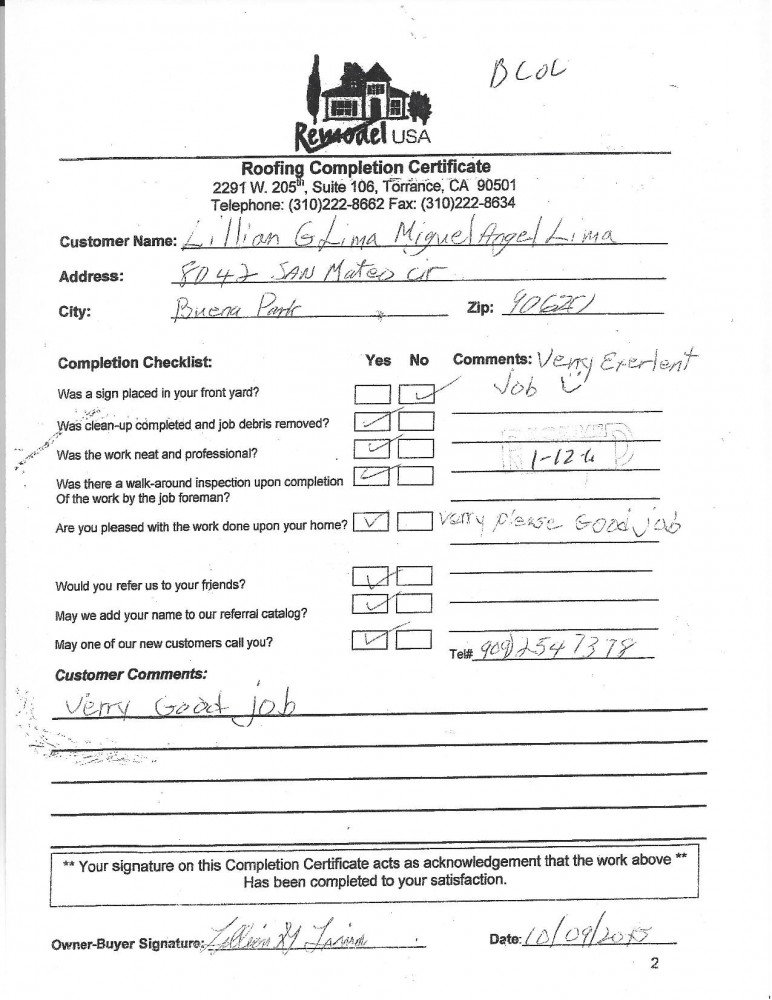 BCOL
Remodel USA
Roofing Completion Certificate
2291 W. 205th, Suite 106, Torrance, CA 90501
Telephone: (310)222-8662 Fax: (310)222-8634
Customer Name: Lillian G Lima Miguel Angel Lima
Address: 8042 SAN Mateo cir
City: Buena Park Zip: 90620
Completion Checklist: Yes No Comments: Verry Exerlent
Job
Was a sign placed in your front yard?
Was clean-up completed and job debris removed?
Was the work neat and professional?
1-12-6
Was there a walk-around inspection upon completion
Of the work by the job foreman?
Are you pleased with the work done upon your home? Verry please Good job
Would you refer us to your friends?
May we add your name to our referral catalog?
May one of our new customers call you? Tel# 909) 254 7378
Customer Comments:
Verry Good job
** Your signature on this Completion Certificate acts as acknowledgement that the work above **
Has been completed to your satisfaction.
Owner-Buyer Signature: Date: 10/09/2015
2